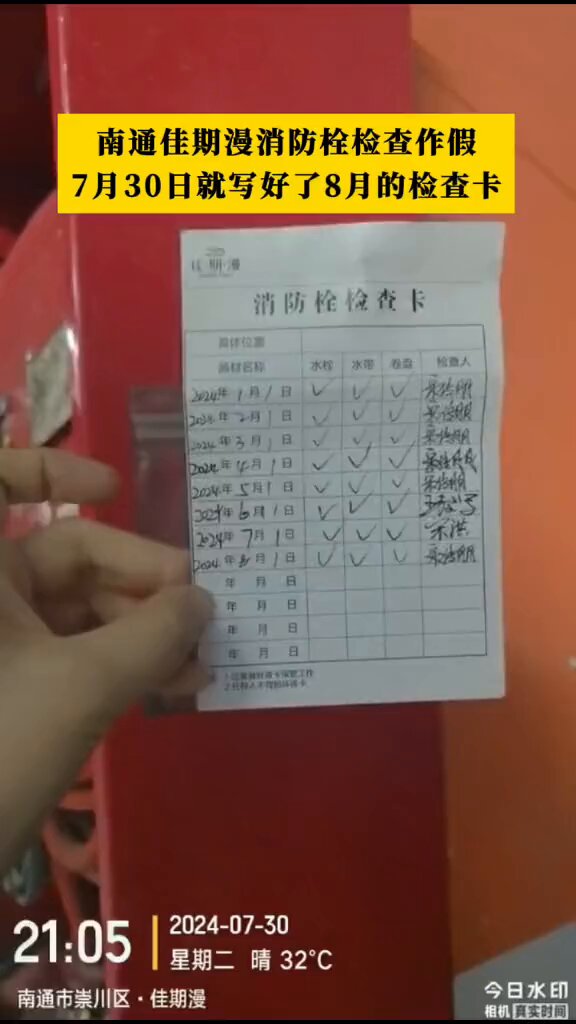 南通佳期漫消防栓检查作假
7月30日就写好了8月的检查卡
佳·期·漫
消防栓检查卡
具体位置
器材名称 水栓 水带 卷盘 检查人
2024年1月1日 ✓ ✓ ✓
2024年2月1日 ✓ ✓ ✓
2024年3月1日 ✓ ✓ ✓
2024年4月1日 ✓ ✓ ✓
2024年5月1日 ✓ ✓ ✓
2024年6月1日 ✓ ✓ ✓
2024年7月1日 ✓ ✓ ✓
2024年8月1日 ✓ ✓ ✓
年 月 日
年 月 日
年 月 日
年 月 日
21:05
2024-07-30
星期二 晴 32°C
南通市崇川区·佳期漫
今日水印
相机 真实时间